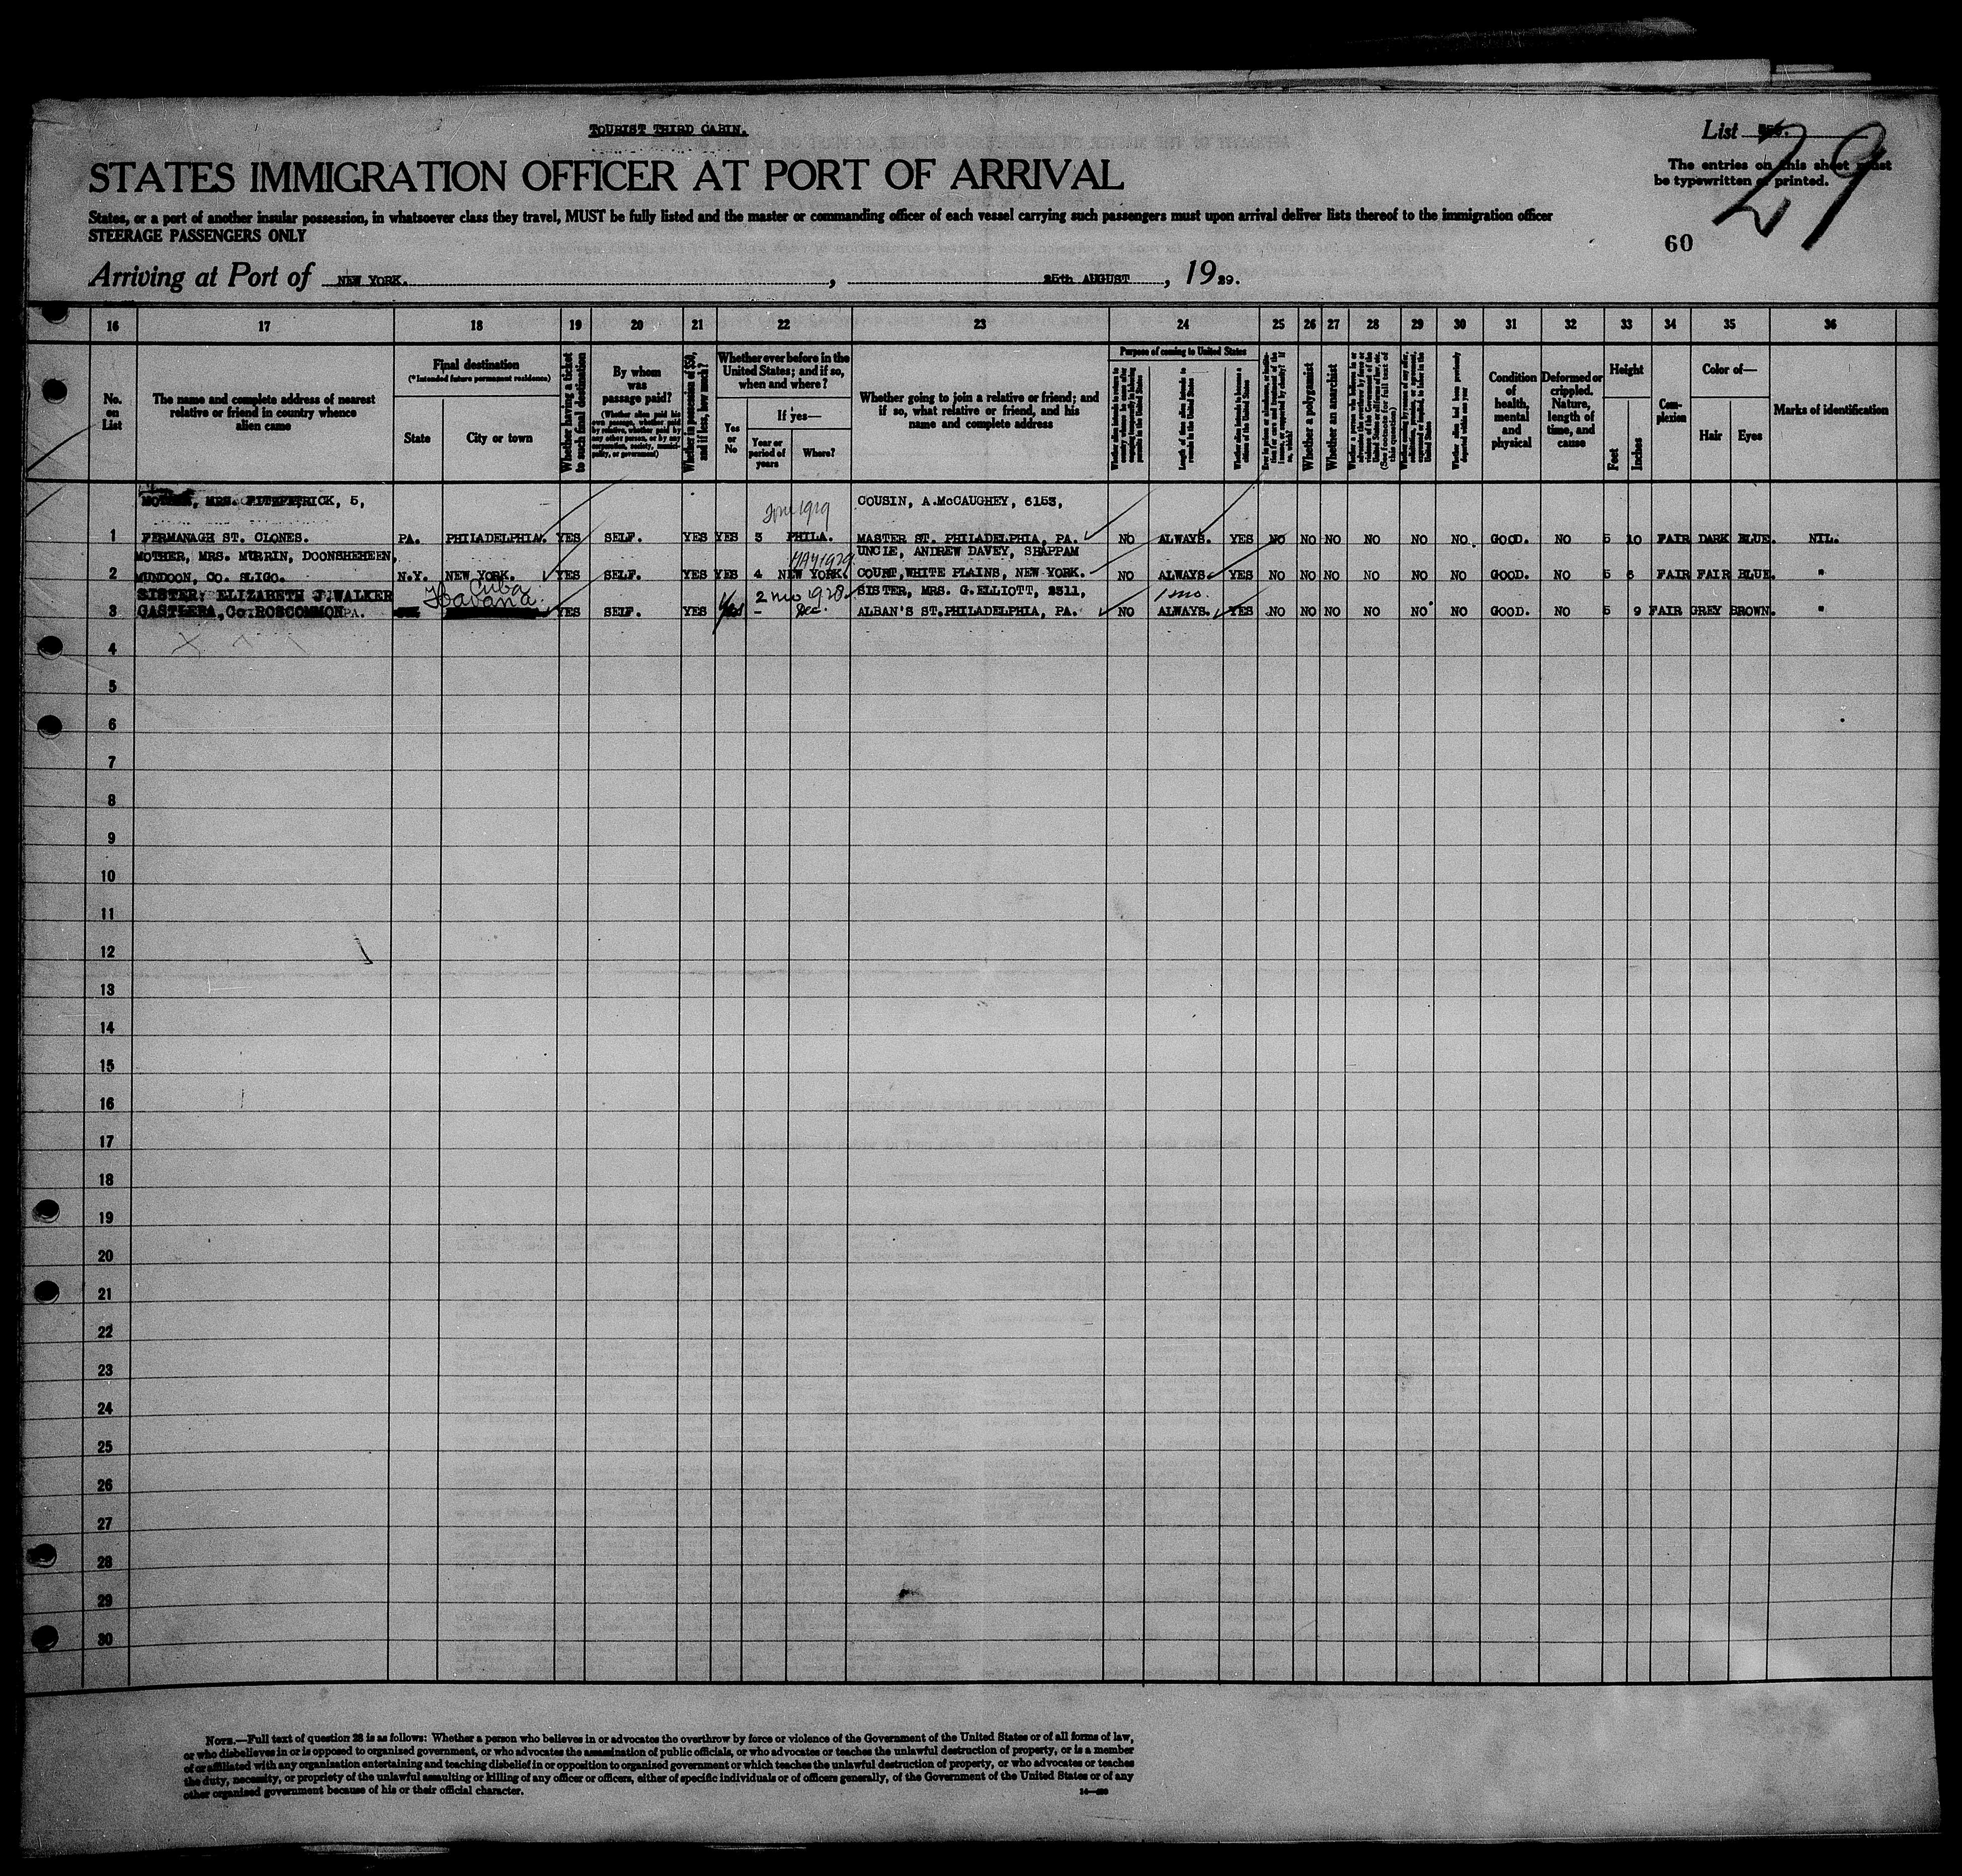 TOURIST THIRD CABIN.
List
29
STATES IMMIGRATION OFFICER AT PORT OF ARRIVAL
The entries on this sheet must
be typewritten or printed.
States, or a port of another insular possession, in whatsoever class they travel, MUST be fully listed and the master or commanding officer of each vessel carrying such passengers must upon arrival deliver lists thereof to the immigration officer
STEERAGE PASSENGERS ONLY
60
Arriving at Port of NEW YORK. , 25th AUGUST , 1929.
16 17 18 19 20 21 22 23 24 25 26 27 28 29 30 31 32 33 34 35 36
No. on List
The name and complete address of nearest relative or friend in country whence alien came
Final destination
(*Intended future permanent residence)
State
City or town
Whether having a ticket to such final destination
By whom was passage paid?
(Whether alien paid his own passage, whether paid by relative, whether paid by any other person, or by any corporation, society, municipality, or government)
Whether in possession of $50, and if less, how much?
Whether ever before in the United States; and if so, when and where?
Yes or No
If yes—
Year or period of years
Where?
Whether going to join a relative or friend; and if so, what relative or friend, and his name and complete address
Purpose of coming to United States
Length of time alien intends to remain in the United States
Whether alien intends to become a citizen of the United States
Whether a polygamist
Whether an anarchist
Whether alien had been previously deported within one year
Condition of health, mental and physical
Deformed or crippled. Nature, length of time, and cause
Height
Feet
Inches
Complexion
Color of—
Hair
Eyes
Marks of identification
MOTHER, MRS. FITZPETRICK, 5, COUSIN, A.McCAUGHEY, 6153,
June 1929
1 FERMANAGH ST. CLONES. PA. PHILADELPHIA. YES SELF. YES YES 3 PHILA. MASTER ST. PHILADELPHIA, PA. NO ALWAYS. YES NO NO NO NO NO NO. GOOD. NO 5 10 FAIR DARK BLUE. NIL.
MOTHER, MRS. MURRIN, DOONSHEHEEN, MAY 1929 UNCLE, ANDREW DAVEY, SHAPPAM
2 MUNDOON, CO. SLIGO. N.Y. NEW YORK. YES SELF. YES YES 4 NEW YORK. COURT, WHITE PLAINS, NEW YORK. NO ALWAYS. YES NO NO NO NO NO NO GOOD. NO 5 6 FAIR FAIR BLUE. "
SISTER: ELIZABETH J. WALKER Cuba Havana. 2 mo 1928. SISTER, MRS. G.ELLIOTT, 2311, 1 mo.
3 CASTLEREA, Co: ROSCOMMON PA. YES SELF. YES Yes – Dec. ALBAN'S ST. PHILADELPHIA, PA. NO ALWAYS. YES NO NO NO NO NO NO GOOD. NO 5 9 FAIR GREY BROWN. "
4
5
6
7
8
9
10
11
12
13
14
15
16
17
18
19
20
21
22
23
24
25
26
27
28
29
30
NOTE.—Full text of question 28 is as follows: Whether a person who believes in or advocates the overthrow by force or violence of the Government of the United States or of all forms of law,
or who disbelieves in or is opposed to organized government, or who advocates the assassination of public officials, or who advocates or teaches the unlawful destruction of property, or is a member
of or affiliated with any organization entertaining and teaching disbelief in or opposition to organized government or which teaches the unlawful destruction of property, or who advocates or teaches
the duty, necessity, or propriety of the unlawful assaulting or killing of any officer or officers, either of specific individuals or of officers generally, of the Government of the United States or of any
other organized government because of his or their official character.